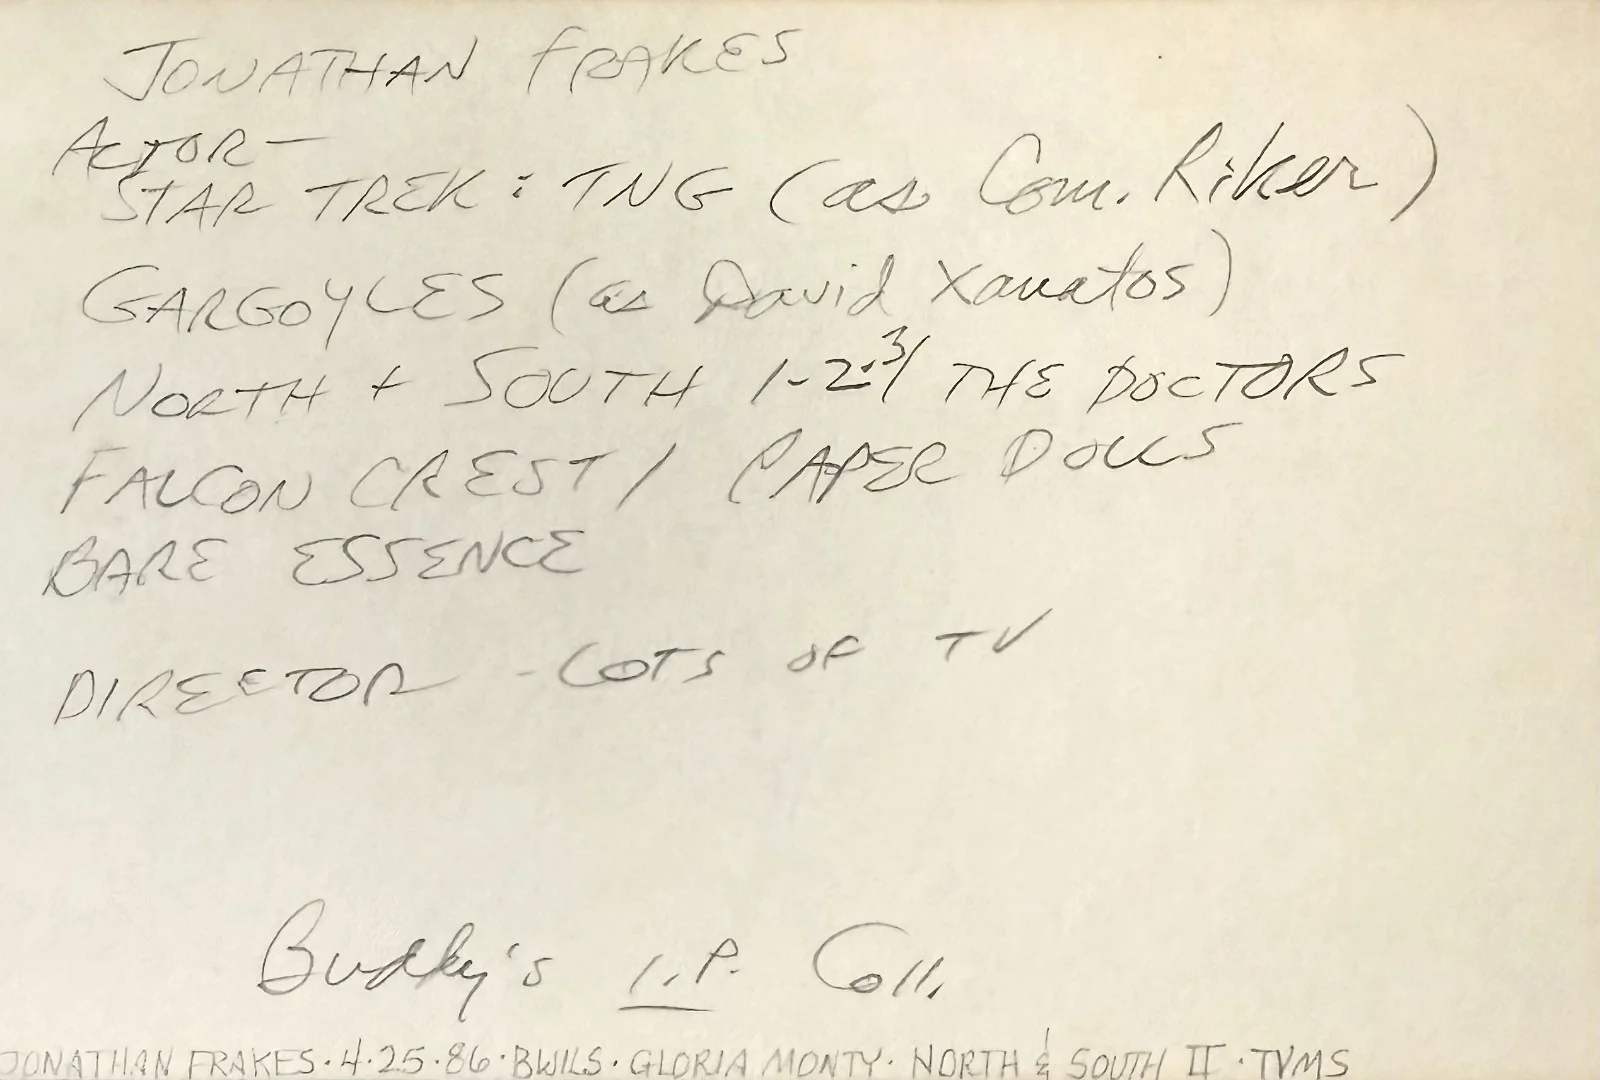 JONATHAN FRAKES
ACTOR —
STAR TREK : TNG (as Com. Riker)
GARGOYLES (as David Xanatos)
NORTH + SOUTH 1-2-3 / THE DOCTORS
FALCON CREST / PAPER DOLLS
BARE ESSENCE
DIRECTOR - LOTS OF TV
Buddy's I.P. Coll.
JONATHAN FRAKES · 4·25·86 · BWILS · GLORIA MONTY · NORTH & SOUTH II · TVMS